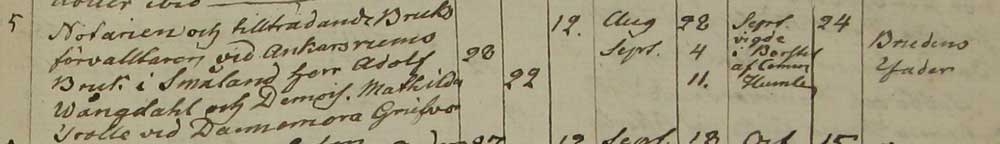 5 Notarien och tillträdande Bruks
förvalltaren vid Ankarsrums
Bruk i Småland herr Adolf
Wångdahl och Demois. Mathilda
Trolle vid Dannemora Grufvor
28
22
12. Aug 28
Sept. 4
11.
Sept. 24
vigde
i Borstel
af Comm.
Humble
Brudens
Fader
27 12 Sept. 18 Oct 15